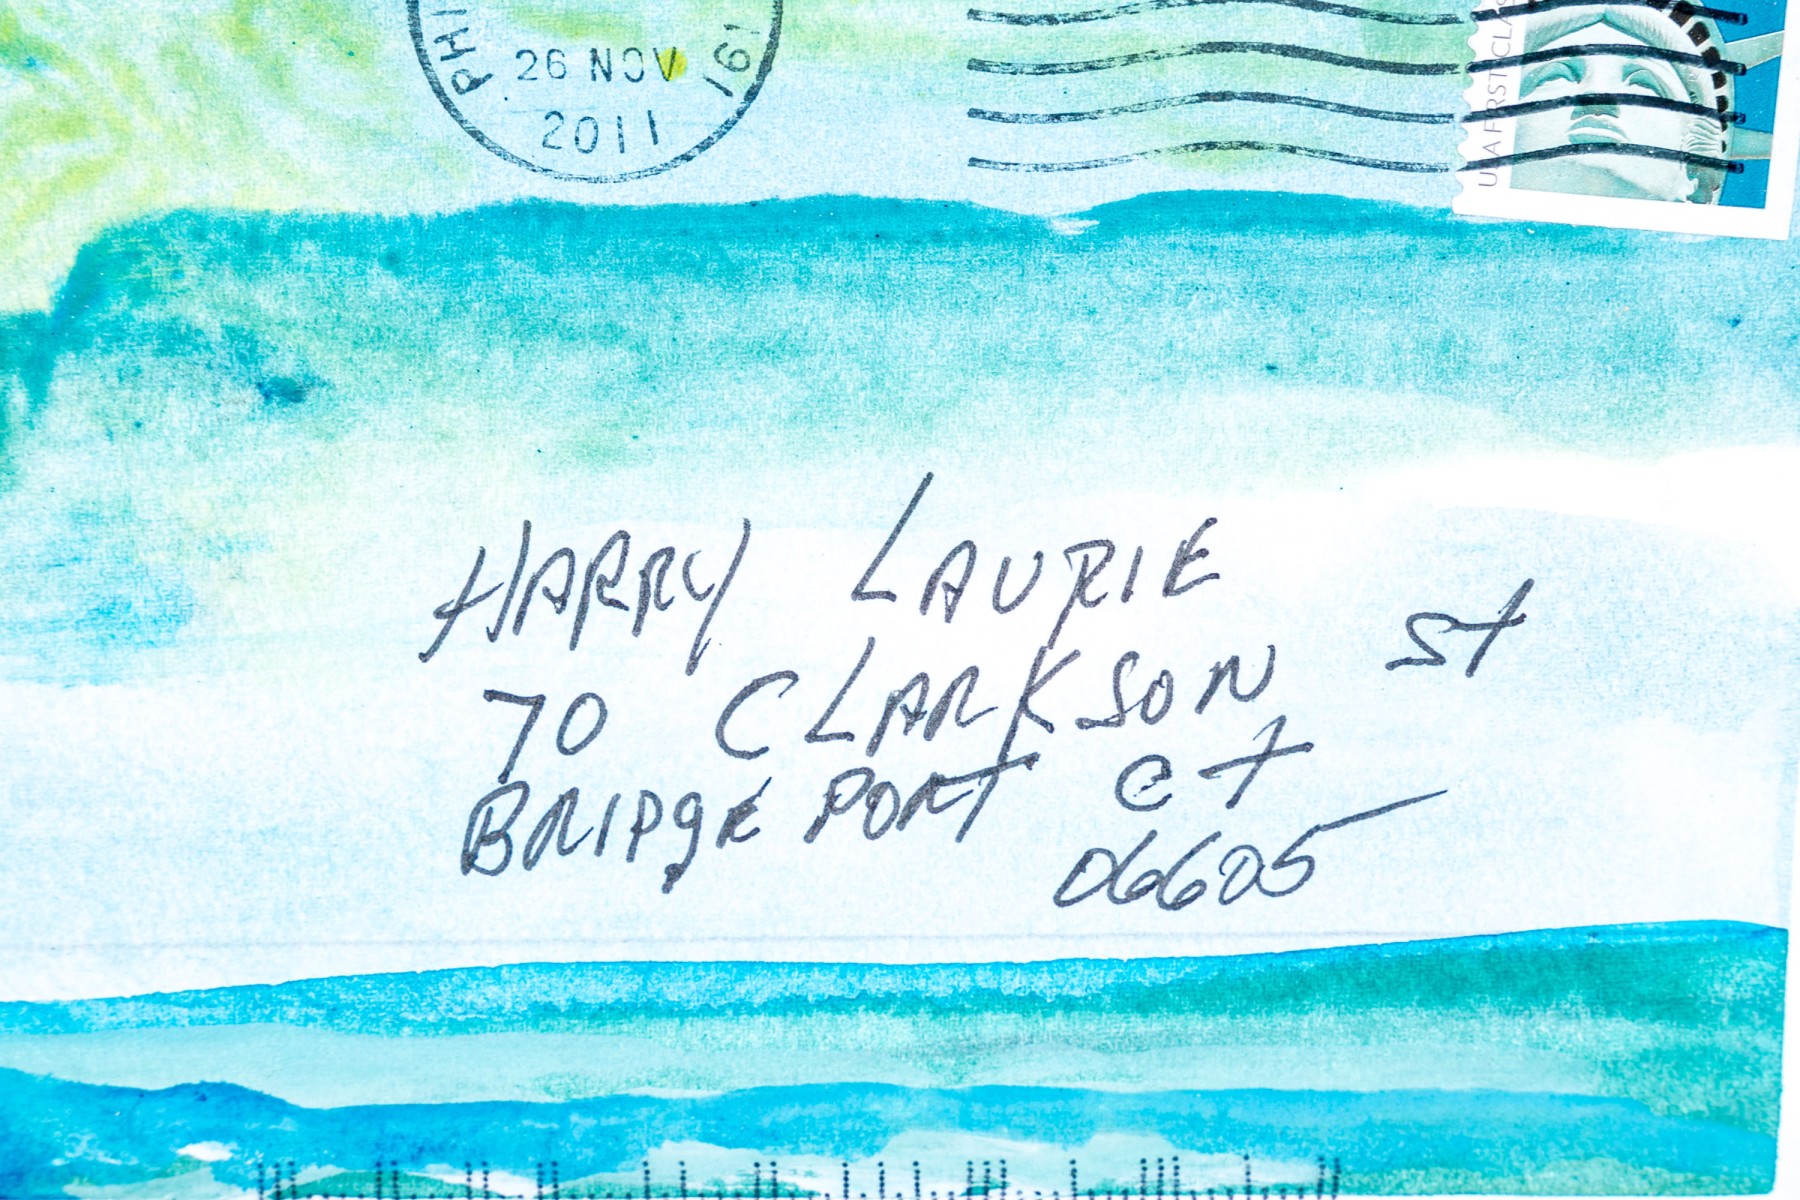 PHI 191
26 NOV
2011
USA FIRST-CLAS
HARRY LAURIE
70 CLARKSON St
BRIDgE PORT Ct
06605